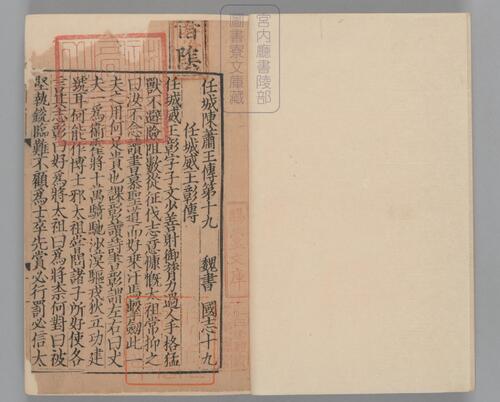 宮内廳書陵部
圖書寮文庫藏
任城陳蕭王傳第十九 魏書 國志十九
任城威王彰傳
任城威王彰字子文少善射御膂力過人手格猛
獸不避險阻數從征伐志意慷慨太祖常抑之
曰汝不念讀書慕聖道而好乗汗馬擊劒此一
夫之用何足貴也課彰讀詩書彰謂左右曰丈
夫一爲衛霍將十萬騎馳沙漠驅戎狄立功建
號耳何能作博士邪太祖嘗問諸子所好使各
言其志彰曰好爲將太祖曰爲將柰何對曰被
堅執銳臨難不顧爲士卒先賞必行罰必信太